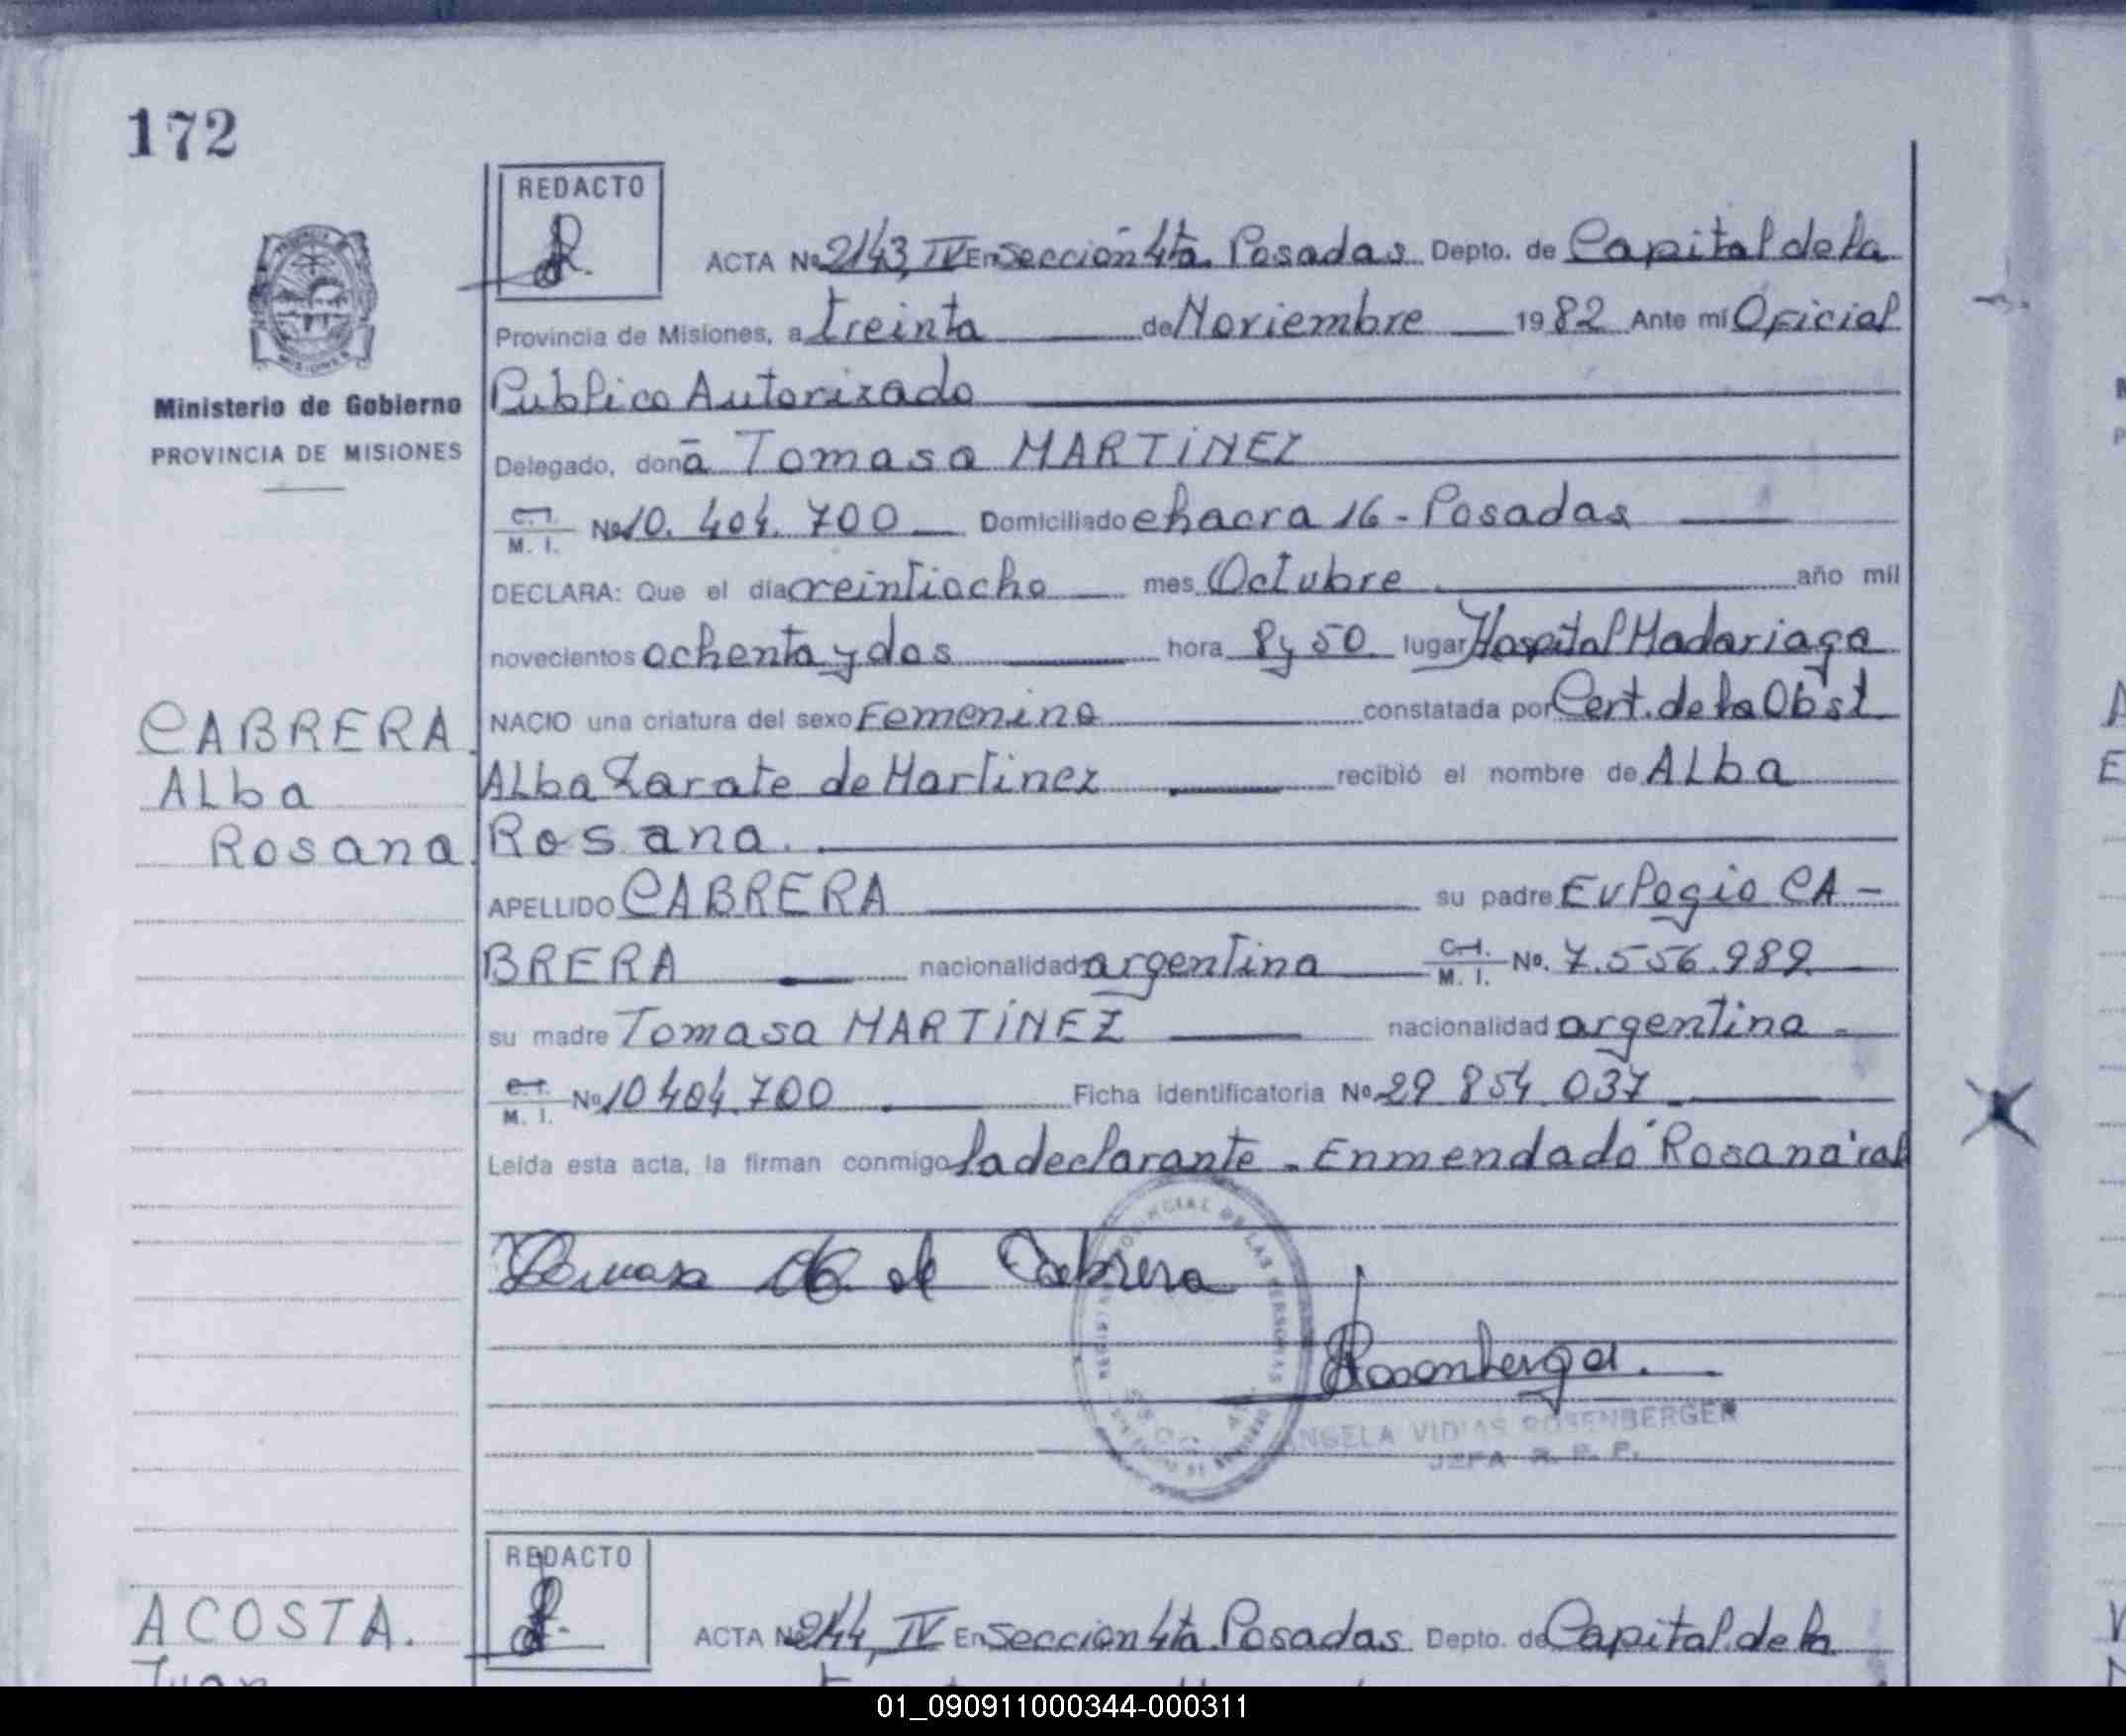 172
REDACTO
ACTA Nº 2143, IV En Sección 4ta. Posadas Depto. de Capital de la
Provincia de Misiones, a treinta de Noviembre 1982 Ante mí Oficial
Publico Autorizado
Ministerio de Gobierno
PROVINCIA DE MISIONES
Delegado, doña Tomasa MARTÍNEZ
C.I.
M. I. Nº 10.404.700 Domiciliado chacra 16 - Posadas
DECLARA: Que el día veintiocho mes Octubre año mil
novecientos ochenta y dos hora 8 y 50 lugar Hospital Madariaga
NACIO una criatura del sexo Femenino constatada por Cert. de la Obst
CABRERA
Alba
Rosana
Alba Zarate de Martinez recibió el nombre de Alba
Rosana.
APELLIDO CABRERA su padre Eulogio CA-
BRERA nacionalidad argentina C.I.
M. I. No. 7.556.989
su madre Tomasa MARTÍNEZ nacionalidad argentina -
C.I.
M. I. Nº 10404.700 Ficha identificatoria Nº 29 854 037
Leída esta acta, la firman conmigo la declarante. Enmendado "Rosana" val
Tomasa M. de Cabrera
Rosenberger.
ANGELA VIDIAS ROSENBERGER
JEFA R. P. P.
REDACTO
ACOSTA.
Juan
ACTA Nº 2144, IV En Sección 4ta. Posadas Depto. de Capital de la
01_090911000344-000311